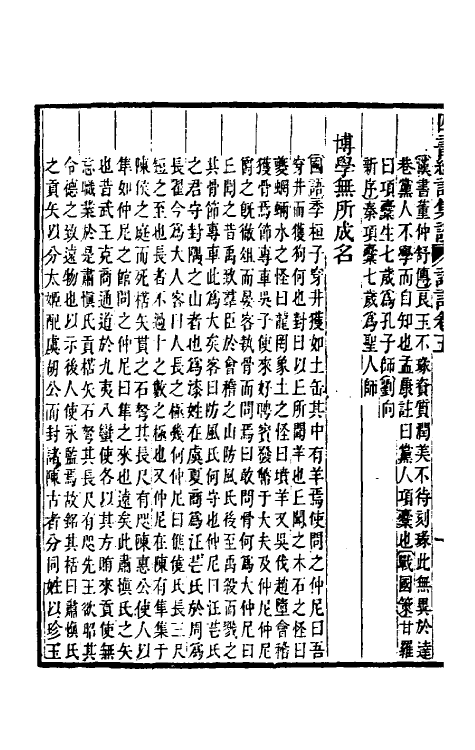 漢書董仲舒傳良玉不瑑資質潤美不待刻瑑此無異於達
巷黨人不學而自知也孟康註曰黨人項橐也戰國策甘羅
曰項橐生七歲爲孔子師劉向
新序秦項橐七歲爲聖人師
博學無所成名
國語季桓子穿井獲如土缶其中有羊焉使問之仲尼曰吾
穿井而獲狗何也對曰以丘所聞羊也丘聞之木石之怪曰
夔蝄蜽水之怪曰龍罔象土之怪曰墳羊又吳伐越墮會稽
獲骨焉節專車吳子使來好聘賓發幣于大夫及仲尼仲尼
爵之旣徹俎而宴客執骨而問焉曰敢問骨何爲大仲尼曰
丘聞之昔禹致羣臣於會稽之山防風氏後至禹殺而戮之
其骨節專車此爲大矣客曰防風氏何守也仲尼曰汪芒氏
之君守封隅之山者也爲漆姓在虞夏商爲汪芒氏於周爲
長翟今爲大人客曰人長之極幾何仲尼曰僬僥氏長三尺
短之至也長者不過十之數之極也又仲尼在陳有隼集于
陳侯之庭而死楛矢貫之石砮其長尺有咫陳惠公使人以
隼如仲尼之館問之仲尼曰隼之來也遠矣此肅愼氏之矢
也昔武王克商通道於九夷八蠻使各以其方賄來貢使無
忘職業於是肅愼氏貢楛矢石砮其長尺有咫先王欲昭其
令德之致遠物也以示後人使永監焉故銘其栝曰肅愼氏
之貢矢以分太姬配虞胡公而封諸陳古者分同姓以珍玉